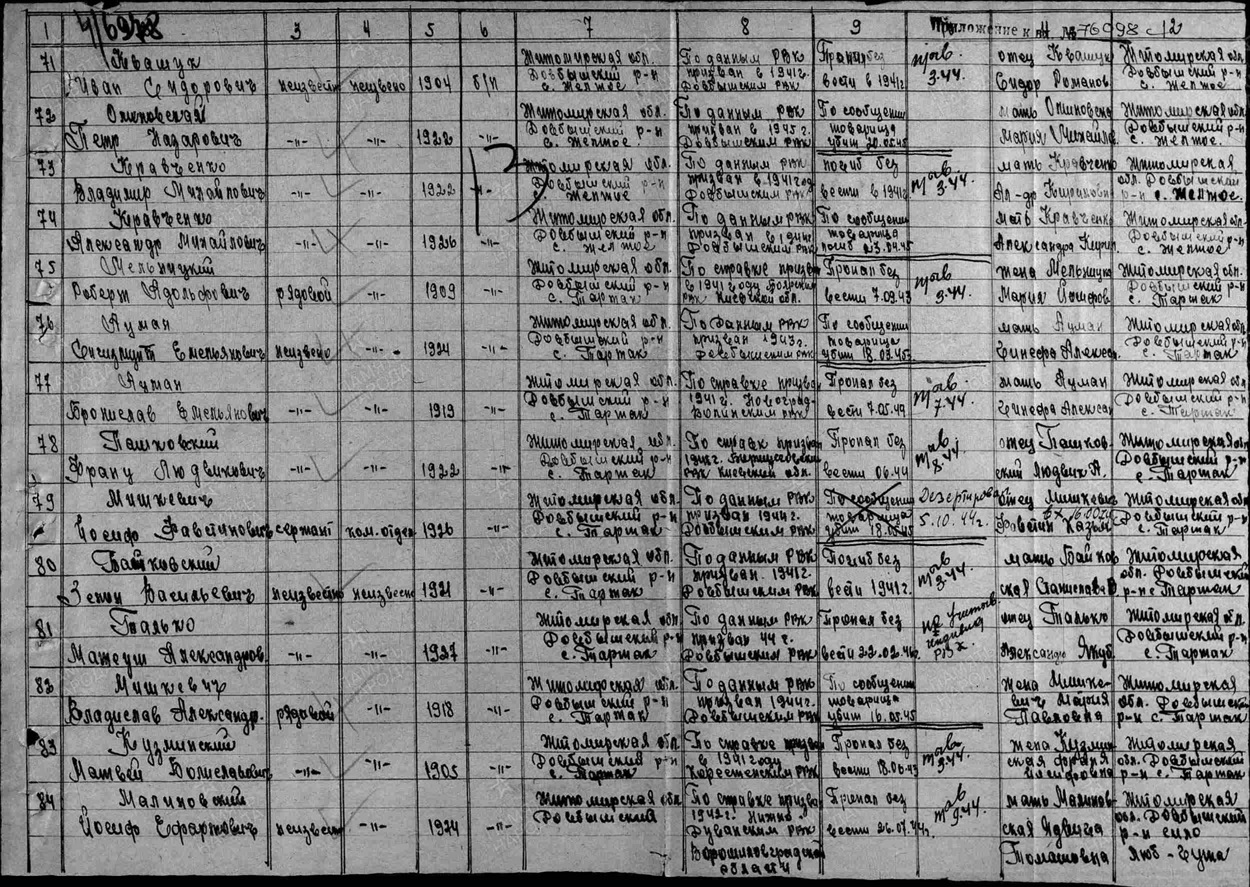 1 4/6978 3 4 5 6 7 8 9 Приложение к вх № 76098 с 12
71 Квашук Житомирская обл. По данным РВК Пропал без отец Квашук Житомирская обл.
Иван Сидорович неизвестн неизвено 1904 б/п Довбышский р-н призван в 1941г. вести в 1941г. 3.44. Сидор Романов Довбышский р-н
с. Жёлтое. Довбышским РВК с. Жёлтое
72 Житомирская обл. По данным РВК По сообщении мать Житомирская обл.
Петр Назарович -"- -"- 1922 -"- Довбышский р-н призван в 1945г. товарища Мария Михайл Довбышский р-н
с. Желтое. Довбышским РВК убит 20.05.45 с. Желтое.
73 Кравченко Житомирская обл. По данным РВК погиб без мать Кравченко Житомирская
Владимир Михайлович -"- -"- 1922 -"- Довбышский р-н призван в 1941год вести в 1941г 3.44. обл. Довбышский
с. Желтое Довбышским РВК р-н с. Желтое.
74 Кравченко Житомирская обл. По данным РВК По сообщении мать Кравченко Житомирская обл.
Александр Михайлович -"- -"- 1926 -"- Довбышский р-н призван в 1944г. товарища Александра Кирил. Довбышский р-н
с. Желтое Довбышским РВК погиб 23.04.45 с. Желтое
75 Мельницкий Житомирская обл. По справке призван Пропал без жена Мельницко Житомирская обл.
Роберт Адольфович рядовой -"- 1909 -"- Довбышский р-н в 1941 году Боярским вести 7.09.43 3.44. Мария Иосифов Довбышский р-н
с. Тартак РВК Киевской обл. с. Тартак
76 Луман Житомирская обл. По данным РВК По сообщении мать Луман Житомирская обл.
Сигизмунт Емельянович неизвено -"- 1924 -"- Довбышский р-н призван 1943г. товарища Гинефа Алексе. Довбышский р-н
с. Тартак Довбышским РВК убит 18.03.45г с. Тартак
77 Луман Житомирская обл. По справке призва Пропал без мать Луман Житомирская обл.
Бронислав Емельянович -"- -"- 1919 -"- Довбышский р-н 1941г. Новоград- вести 7.05.44 7.44. Гинефа Алексан Довбышский р-н
с. Тартак Волынским РВК с. Тартак
78 Пашковский Житомирская обл. По справк призван Пропал без отец Пашков- Житомирская обл.
Франц Людвикович -"- -"- 1922 -"- Довбышский р-н вести 06.44 8.44. ский Людвик А. Довбышский р-н
с. Тартак РВК Киевской обл. с. Тартак
79 Мишкевич Житомирская обл. По данным РВК По сообщении Дезертировал отец Мишкевич Житомирская обл.
Иосиф сержант ком. отдел 1926 -"- Довбышский р-н призван 1944г. товарища 5.10.44г. Довбышский р-н
с. Тартак Довбышским РВК убит 18.05.45 с. Тартак
80 Байковский Житомирская обл. По данным РВК Погиб без мать Байков Житомирская
Зенон Васильевич неизвестно неизвестно 1921 -"- Довбышский р-н призван 1941г. вести 1941г. 3.44. ская Станислава В обл. Довбышский
с. Тартак Довбышским РВК р-н с Тартак
81 Талько Житомирская обл По данным РВК Пропал без отец Талько Житомирская обл.
Матеуш Александров -"- -"- 1927 -"- Довбышский р-н призван 44 г. вести 22.02.46г Александр Якуб Довбышский р-н
с. Тартак Довбышским РВК с. Тартак
82 Мишкевич Житомирская обл. По данным РВК По сообщении жена Мишке- Житомирская
Владислав Александр. рядовой -"- 1918 -"- Довбышский р-н призван 1944г. товарища вич Мария обл. Довбышский
с. Тартак Довбышским РВК убит 16.05.45 Павловна р-н с. Тартак
83 Кузминский Житомирская обл. По справке призва Пропал без жена Кузмин Житомирская
Матвей Болиславович -"- -"- 1905 -"- Довбышский р-н в 1941году вести 18.06.43 9.44. ская Франя обл. Довбышский
с. Тартак Коростенским РВК Иосифовна р-н с. Тартак
84 Малиновский Житомирская обл. По справке призва Пропал без мать Малинов- Житомирская
Иосиф неизвест -"- 1924 -"- Довбышский 1942г. Нижне- вести 26.07.44г. 9.44. ская Ядвига обл. Довбышский
Дуванским РВК Томашовна р-н село
Ворошиловградской Люб-Гуша
области